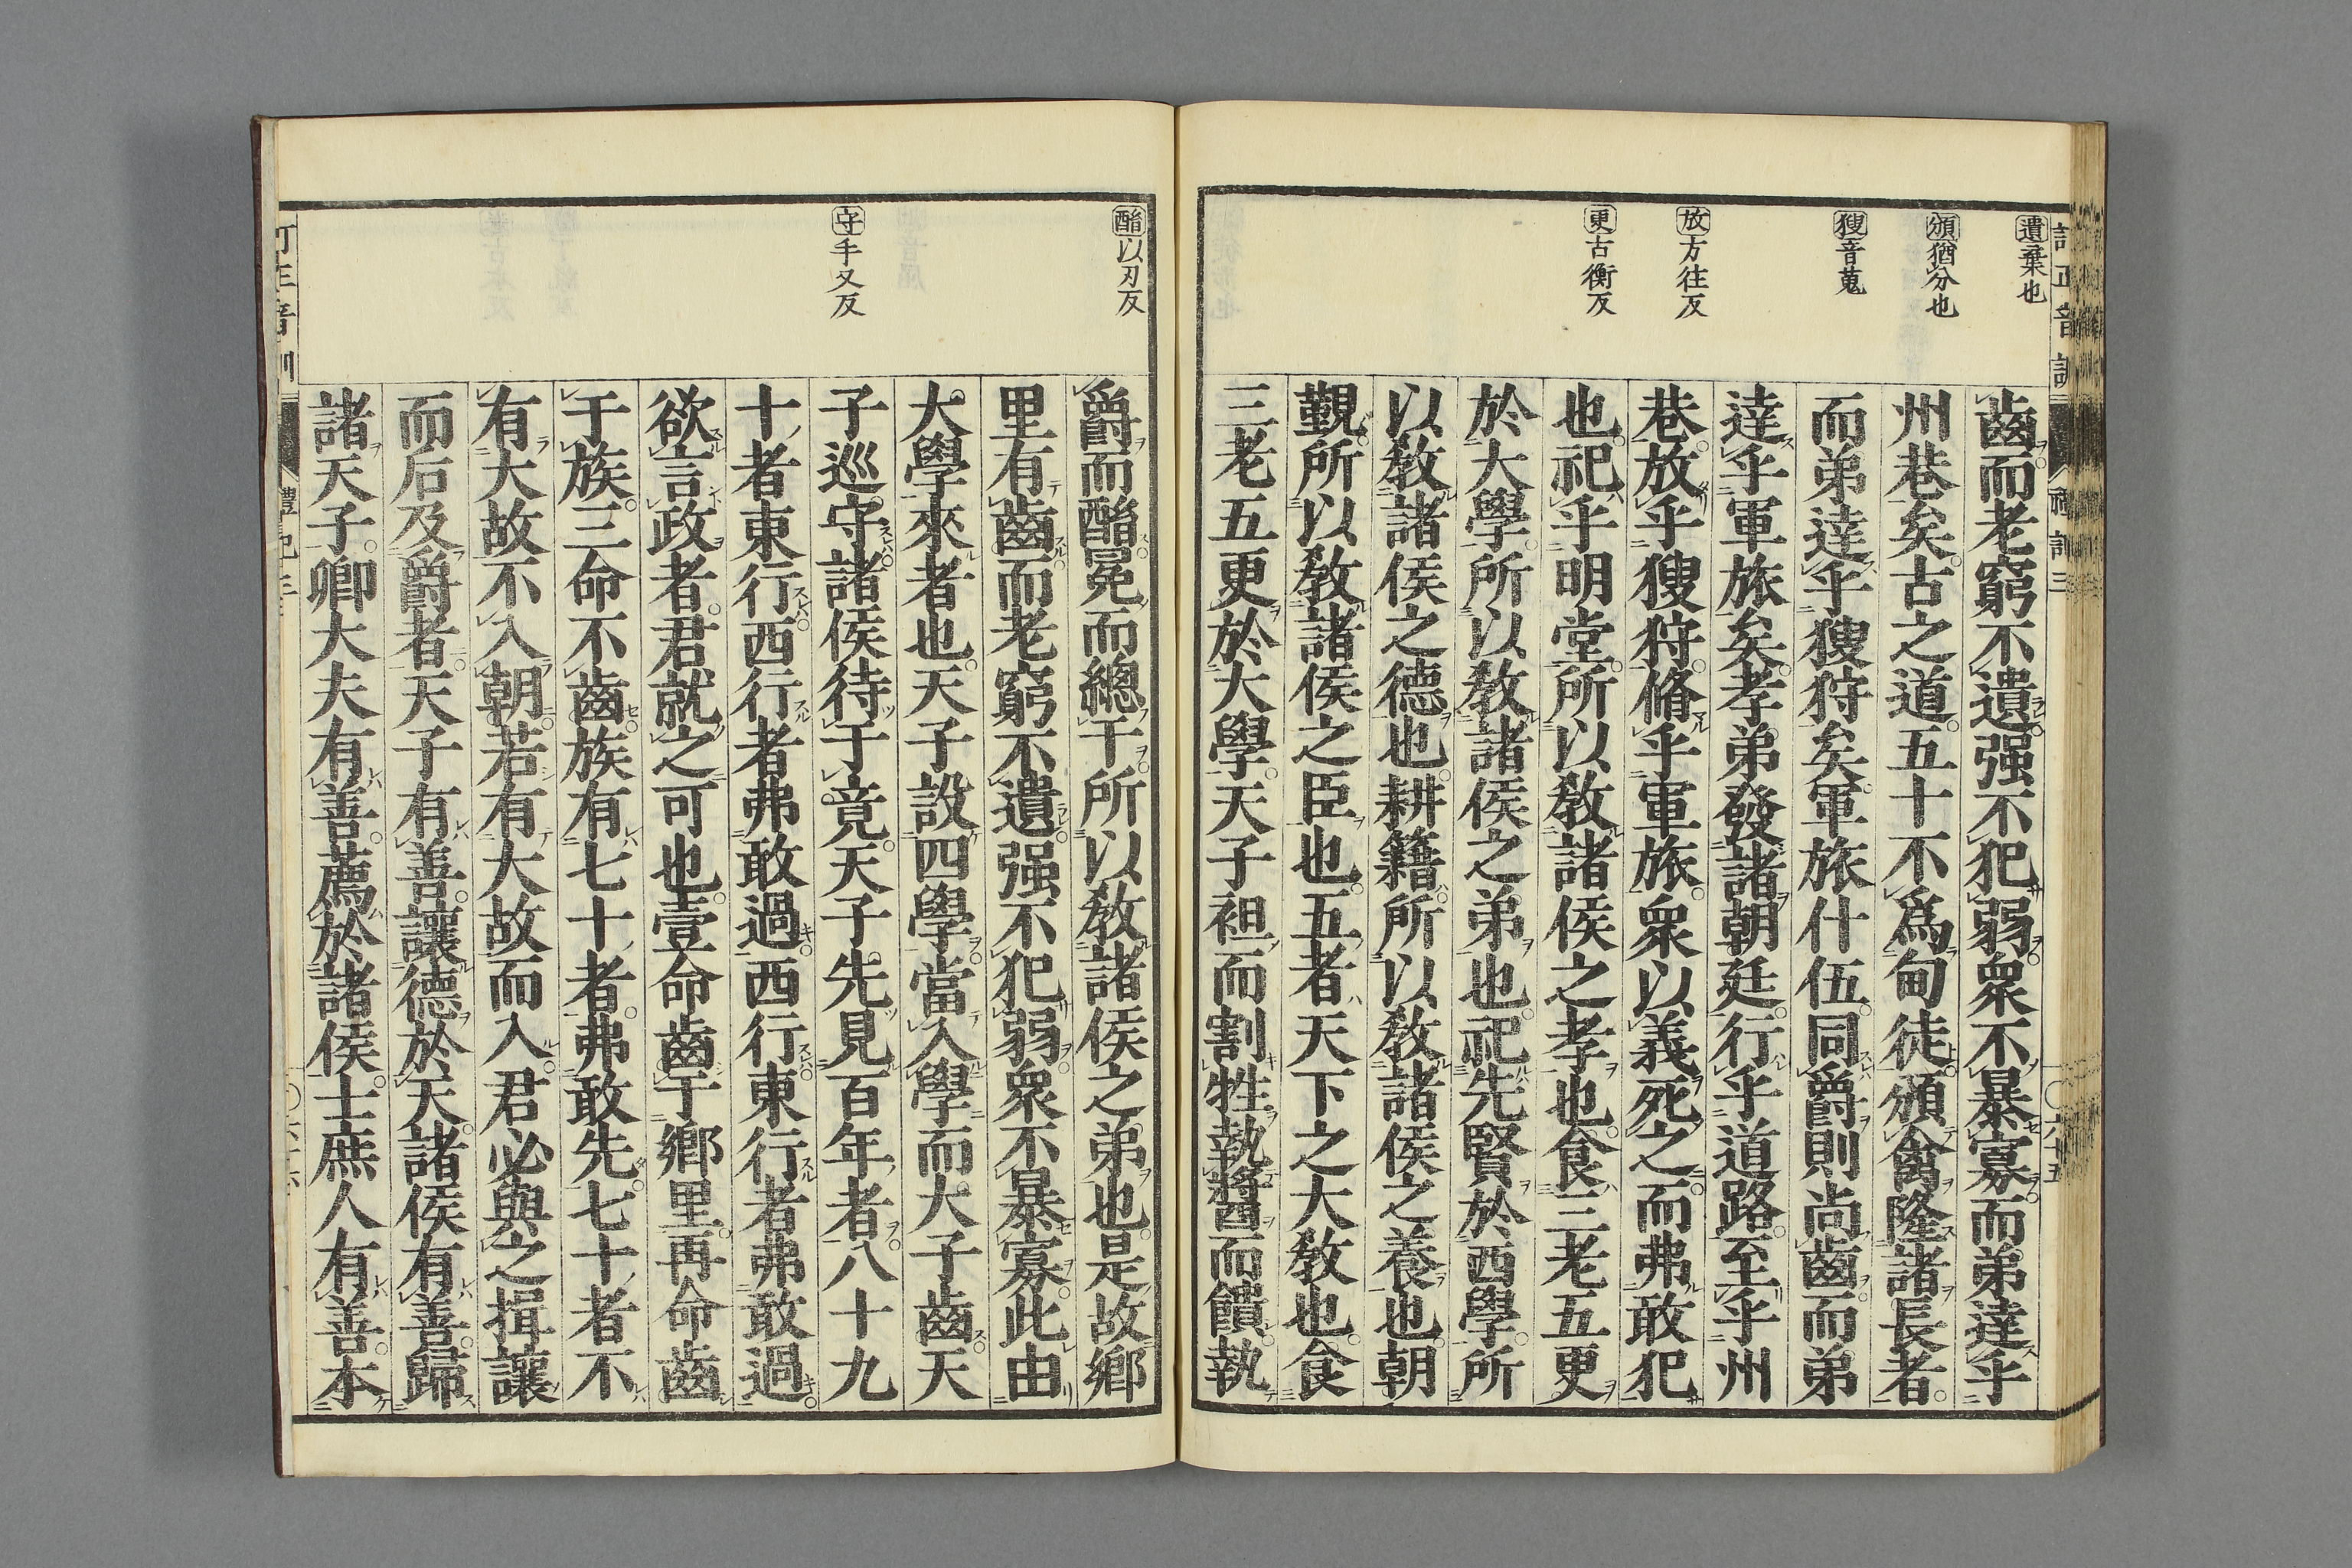 遺棄也
頒猶分也
獀音蒐
放方往反
更古衡反
齒而老窮不遺强不犯弱衆不暴寡而弟達乎
州巷矣古之道五十不爲甸徒頒禽隆諸長者
而弟達乎獀狩矣軍旅什伍同爵則尚齒而弟
達乎軍旅矣孝弟發諸朝廷行乎道路至乎州
巷放乎獀狩脩乎軍旅衆以義死之而弗敢犯
也祀乎明堂所以敎諸侯之孝也食三老五更
於大學所以敎諸侯之弟也祀先賢於西學所
以敎諸侯之德也耕籍所以敎諸侯之養也朝
覲所以敎諸侯之臣也五者天下之大敎也食
三老五更於大學天子袒而割牲執醬而饋執
酳以刃反
守手又反
爵而酳冕而總干所以敎諸侯之弟也是故鄕
里有齒而老窮不遺强不犯弱衆不暴寡此由
大學來者也天子設四學當入學而大子齒天
子巡守諸侯待于竟天子先見百年者八十九
十者東行西行者弗敢過西行東行者弗敢過
欲言政者君就之可也壹命齒于鄕里再命齒
于族三命不齒族有七十者弗敢先七十者不
有大故不入朝若有大故而入君必與之揖讓
而后及爵者天子有善讓德於天諸侯有善歸
諸天子卿大夫有善薦於諸侯士庶人有善本